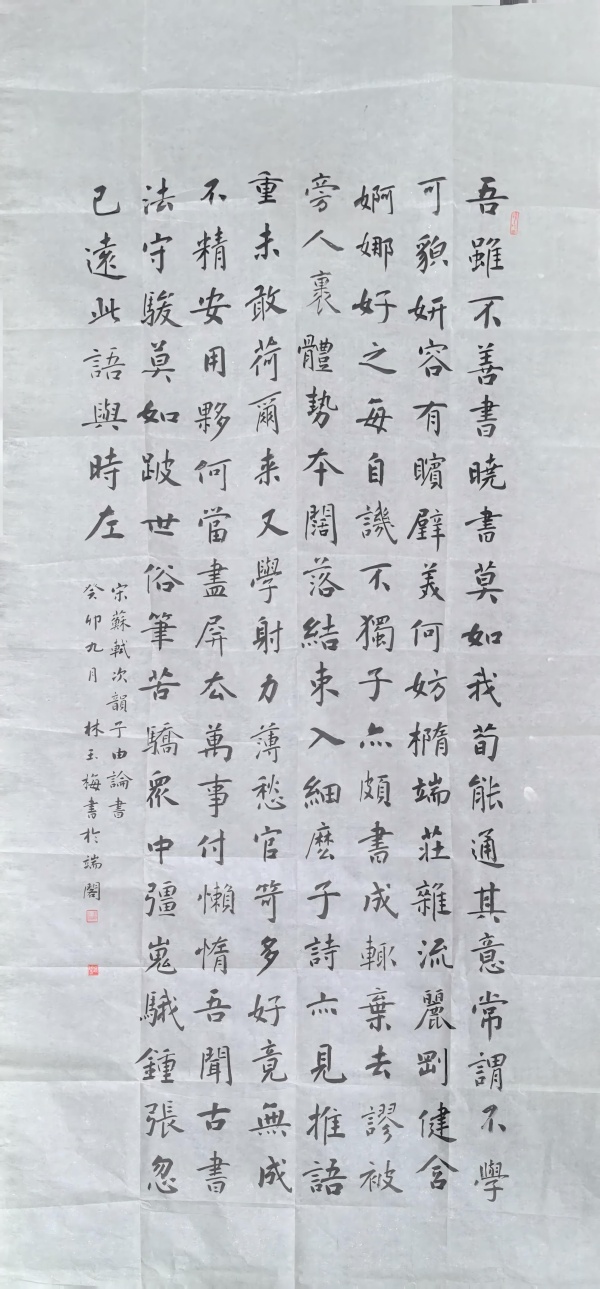 吾雖不善書曉書莫如我苟能通其意常謂不學
可貌妍容有矉璧美何妨橢端莊雜流麗剛健含
婀娜好之每自譏不獨子亦頗書成輒棄去謬被
旁人裹體勢本闊落結束入細麼子詩亦見推語
重未敢荷爾來又學射力薄愁官笴多好竟無成
不精安用夥何當盡屏去萬事付懶惰吾聞古書
法守駿莫如跛世俗筆苦驕眾中彊嵬騀鍾張忽
已遠此語與時左
宋蘇軾次韻子由論書
癸卯九月 林玉梅書於端閣